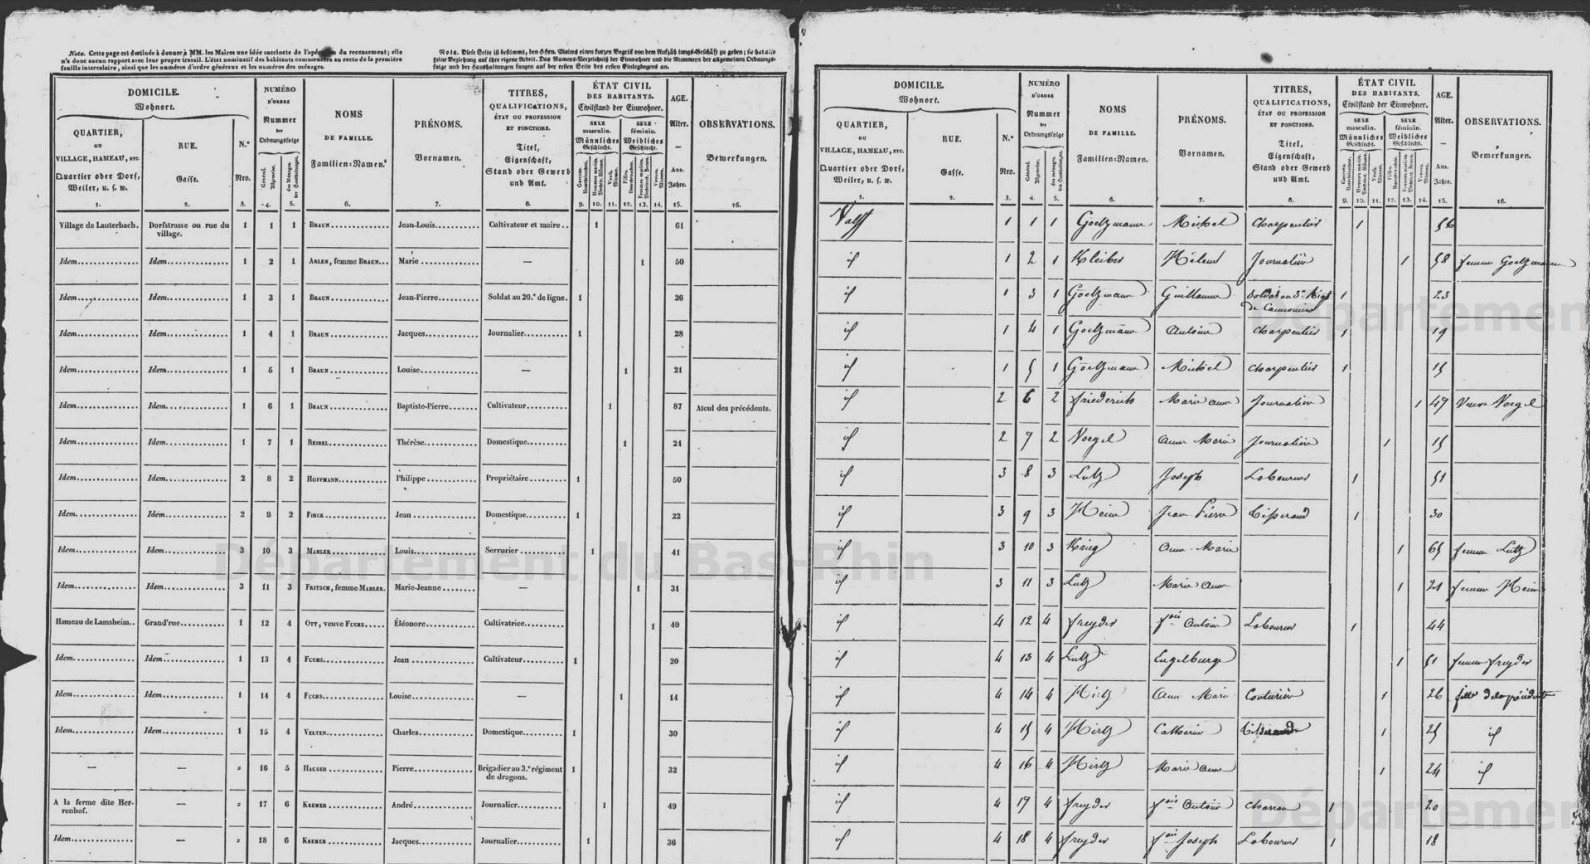 Nota. Cette page est destinée à donner à MM. les Maires une idée succincte de l'opération du recensement; elle
n'a donc aucun rapport avec leur propre travail. L'état nominatif des habitants commencera au recto de la première
feuille intercalaire, ainsi que les numéros d'ordre généraux et les numéros des ménages.
DOMICILE.
Wohnort.
QUARTIER,
ou
VILLAGE, HAMEAU, etc.
Quartier oder Dorf,
Weiler, u. s. w.
RUE.
Gasse.
N.º
Nro.
NUMÉRO
D'ORDRE
Nummer
der
Ordnungsfolge
NOMS
DE FAMILLE.
Familien-Namen.
PRÉNOMS.
Vornamen.
TITRES,
QUALIFICATIONS,
ÉTAT OU PROFESSION
ET FONCTIONS.
Titel,
Eigenschaft,
Stand oder Gewerb
und Amt.
ÉTAT CIVIL
DES HABITANTS.
Civilstand der Einwohner.
SEXE masculin.
Männliches Geschlecht.
SEXE féminin.
Weibliches Geschlecht.
AGE.
Alter.
Ans.
Jahre.
OBSERVATIONS.
Bemerkungen.
1. 2. 3. 4. 5. 6. 7. 8. 9. 10. 11. 12. 13. 14. 15. 16.
Village de Lauterbach. Dorfstrasse ou rue du village. 1 1 1 BRAUN Jean-Louis Cultivateur et maire 1 61
Idem Idem 1 2 1 ADLEN, femme BRAUN Marie — 1 50
Idem Idem 1 3 1 BRAUN Jean-Pierre Soldat au 20.e de ligne. 1 26
Idem Idem 1 4 1 BRAUN Jacques Journalier 1 28
Idem Idem 1 5 1 BRAUN Louise — 1 21
Idem Idem 1 6 1 BRAUN Baptiste-Pierre Cultivateur 1 87 Aïeul des précédents.
Idem Idem 1 7 1 REIBEL Thérèse Domestique 1 21
Idem Idem 2 8 2 HOFFMANN Philippe Propriétaire 1 50
Idem Idem 2 9 2 FINCK Jean Domestique 1 22
Idem Idem 3 10 3 MAHLER Louis Serrurier 1 41
Idem Idem 3 11 3 FRITSCH, femme MAHLER Marie-Jeanne — 1 31
Hameau de Lamsheim Grand'rue 1 12 4 OTT, veuve FUCHS Éléonore Cultivatrice 1 40
Idem Idem 1 13 4 FUCHS Jean Cultivateur 1 20
Idem Idem 1 14 4 FUCHS Louise — 1 14
Idem Idem 1 15 4 VELTEN Charles Domestique 1 30
— — » 16 5 HAUSER Pierre Brigadier au 3.e régiment de dragons. 1 32
A la ferme dite Herrenhof. — » 17 6 KREMER André Journalier 1 49
Idem — » 18 6 KREMER Jacques Journalier 1 36
DOMICILE.
Wohnort.
QUARTIER,
ou
VILLAGE, HAMEAU, etc.
Quartier oder Dorf,
Weiler, u. s. w.
RUE.
Gasse.
N.º
Nro.
NUMÉRO
D'ORDRE
Nummer
der
Ordnungsfolge
NOMS
DE FAMILLE.
Familien-Namen.
PRÉNOMS.
Vornamen.
TITRES,
QUALIFICATIONS,
ÉTAT OU PROFESSION
ET FONCTIONS.
Titel,
Eigenschaft,
Stand oder Gewerb
und Amt.
ÉTAT CIVIL
DES HABITANTS.
Civilstand der Einwohner.
SEXE masculin.
Männliches Geschlecht.
SEXE féminin.
Weibliches Geschlecht.
AGE.
Alter.
Ans.
Jahre.
OBSERVATIONS.
Bemerkungen.
1. 2. 3. 4. 5. 6. 7. 8. 9. 10. 11. 12. 13. 14. 15. 16.
Valff 1 1 1 Goetzmann Michel Charpentier 1 56
id 1 2 1 Kleiber Hélene Journalière 1 58 femme Goetzmann
id 1 3 1 Goetzmann Guillaume Soldat au 3e Regt de Canoniers 1 23
id 1 4 1 Goetzmann Antoine Charpentier 1 19
id 1 5 1 Goetzmann Michel Charpentier 1 15
id 2 6 2 friederich Marie anne Journalière 1 47 Veuve Voegel
id 2 7 2 Voegel anne Marie Journalière 1 15
id 3 8 3 Lutz Joseph Laboureur 1 51
id 3 9 3 Heim Jean Pierre Tisserand 1 30
id 3 10 3 Krieg Anne Marie 1 65 femme Lutz
id 3 11 3 Lutz Marie anne 1 femme Heim
id 4 12 4 freyder fois antoine Laboureur 1 44
id 4 13 4 Lutz Engelburg 1 51 femme freyder
id 4 14 4 Hirtz Anne Marie Couturière 1 26 fille de la précédente
id 4 15 4 Hirtz Catherine 1 25 id
id 4 16 4 Hirtz Marie anne 1 24 id
id 4 17 4 freyder fois antoine charron 1 20
id 4 18 4 freyder fois Joseph Laboureur 1 18
Département du Bas-Rhin
Départemen
Départemen